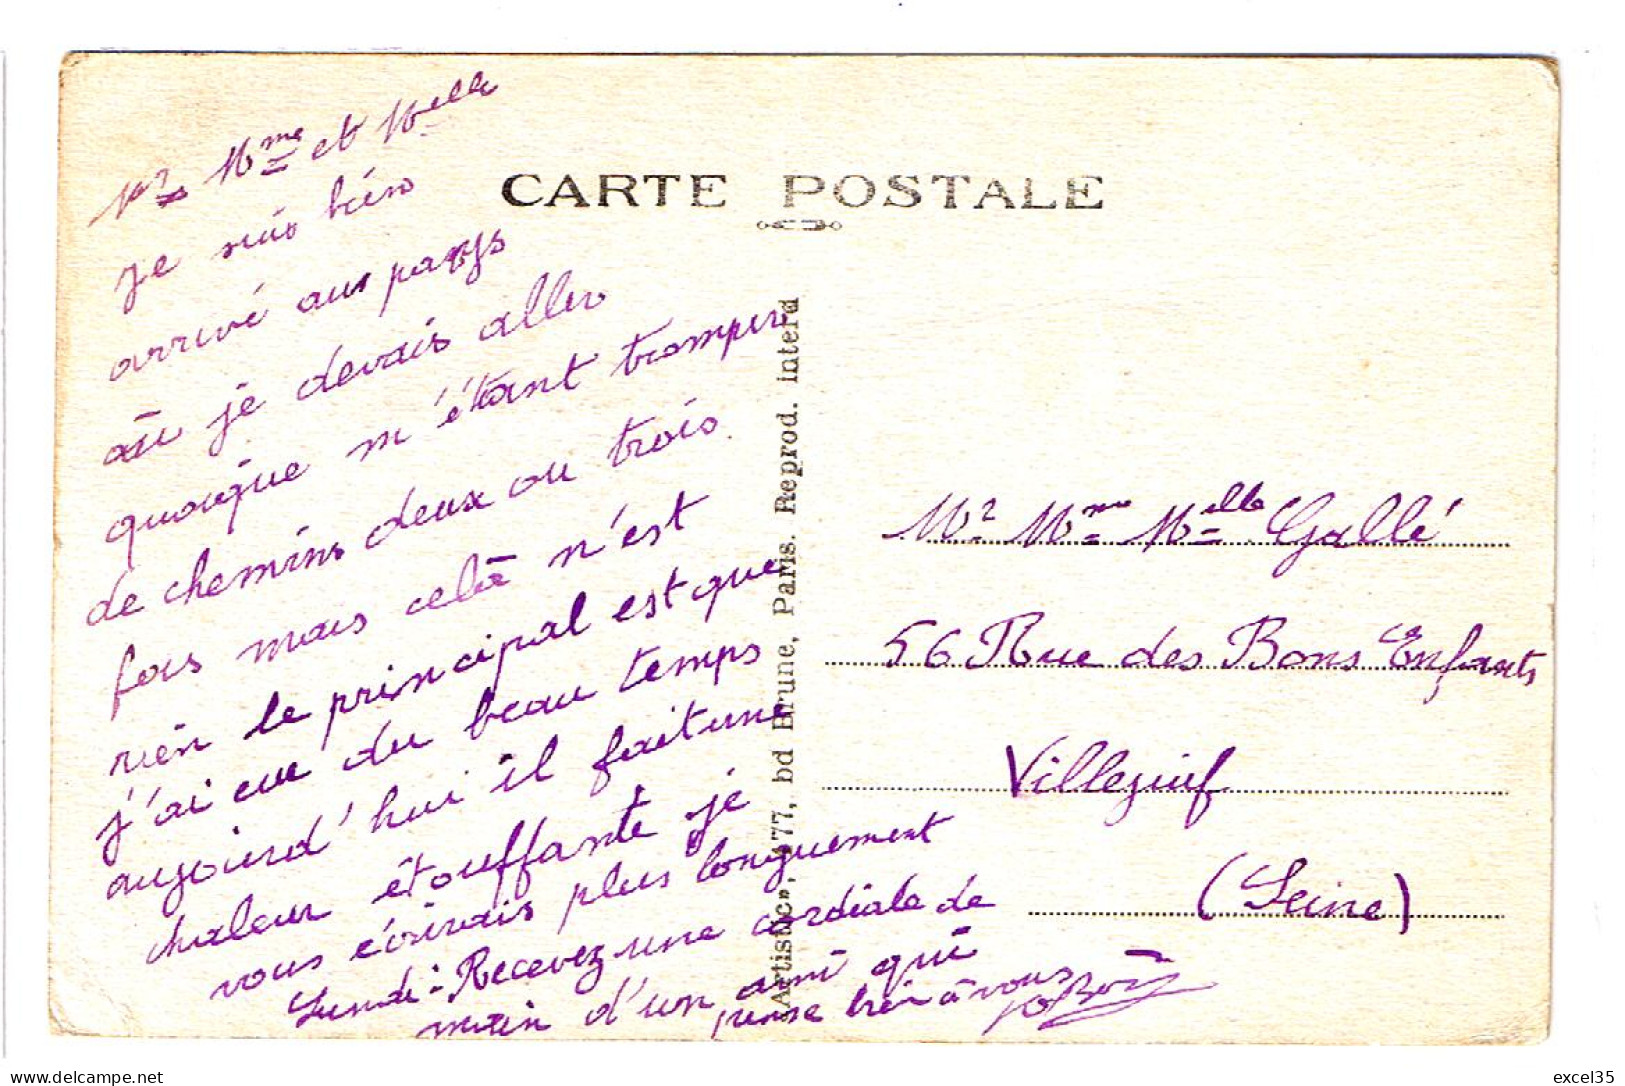 CARTE POSTALE
Mr Mme et Melle
je suis bien
arrivé aux pays
où je devais aller
quoique m'étant tromper
de chemins deux ou trois
fois mais celà n'est
rien le principal est que
j'ai eue du beau temps
aujourd'hui il fait une
chaleur étouffante je
vous écirais plus longuement
Lundi - Recevez une cordiale de
main d'un ami qui
pense bien à vous
"Artistic", 177, bd Brune, Paris. Reprod. interd
Mr Mme Melle Gallé
56 Rue des Bons Enfants
Villejuif
(Seine)
delcampe.net
excel35